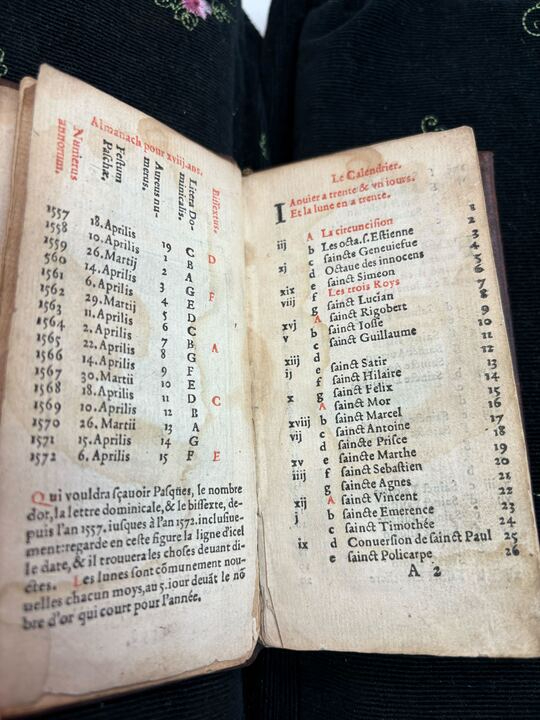 Almanach pour xviij.ans.
Numerus annorum.
Festum Paschæ.
Aureus numerus.
Litera Dominicalis.
Bissextus.
1557 18.Aprilis 19 C D
1558 10.Aprilis 1 B
1559 26.Martij 2 A
560 14.Aprilis 3 G F
1561 6.Aprilis 4 E
1562 29.Martij 5 D
1563 11.Aprilis 6 C
1564 2.Aprilis 7 B A
1565 22.Aprilis 8 G
1566 14.Aprilis 9 F
1567 30.Martii 10 E
1568 18.Aprilis 11 D C
1569 10.Aprilis 12 B
1570 26.Martii 13 A
1571 15.Aprilis 14 G
1572 6.Aprilis 15 F E
Qui vouldra sçauoir Pasques, le nombre
d'or, la lettre dominicale, & le bissexte, de-
puis l'an 1557. iusques à l'an 1572. inclusiue-
ment: regarde en ceste figure la ligne d'icel
le date, & il trouuera les choses deuant di-
ctes. Les lunes sont cõmunement nou-
uelles chacun moys, au 5.iour deuãt le nõ
bre d'or qui court pour l'année.
Le Calendrier.
IAnuier a trente & vn iours.
Et la lune en a trente.
iij A La circuncision 1
b Les octa.ſ.Eſtienne 2
xj c ſaincte Geneuiefue 3
d Octaue des innocens 4
xix e ſainct Simeon 5
viij f Les trois Roys 6
g ſainct Lucian 7
xvj A ſainct Rigobert 8
v b ſainct Ioſſe 9
c ſainct Guillaume 10
xiij d 11
ij e ſainct Satir 12
f ſainct Hilaire 13
x g ſainct Felix 14
A ſainct Mor 15
xviij b ſainct Marcel 16
vij c ſainct Antoine 17
d ſaincte Priſce 18
xv e ſaincte Marthe 19
iiij f ſainct Sebaſtien 20
g ſaincte Agnes 21
xij A ſainct Vincent 22
j b ſaincte Emerence 23
c ſainct Timothée 24
ix d Conuerſion de ſainct Paul 25
e ſainct Policarpe 26
A 2